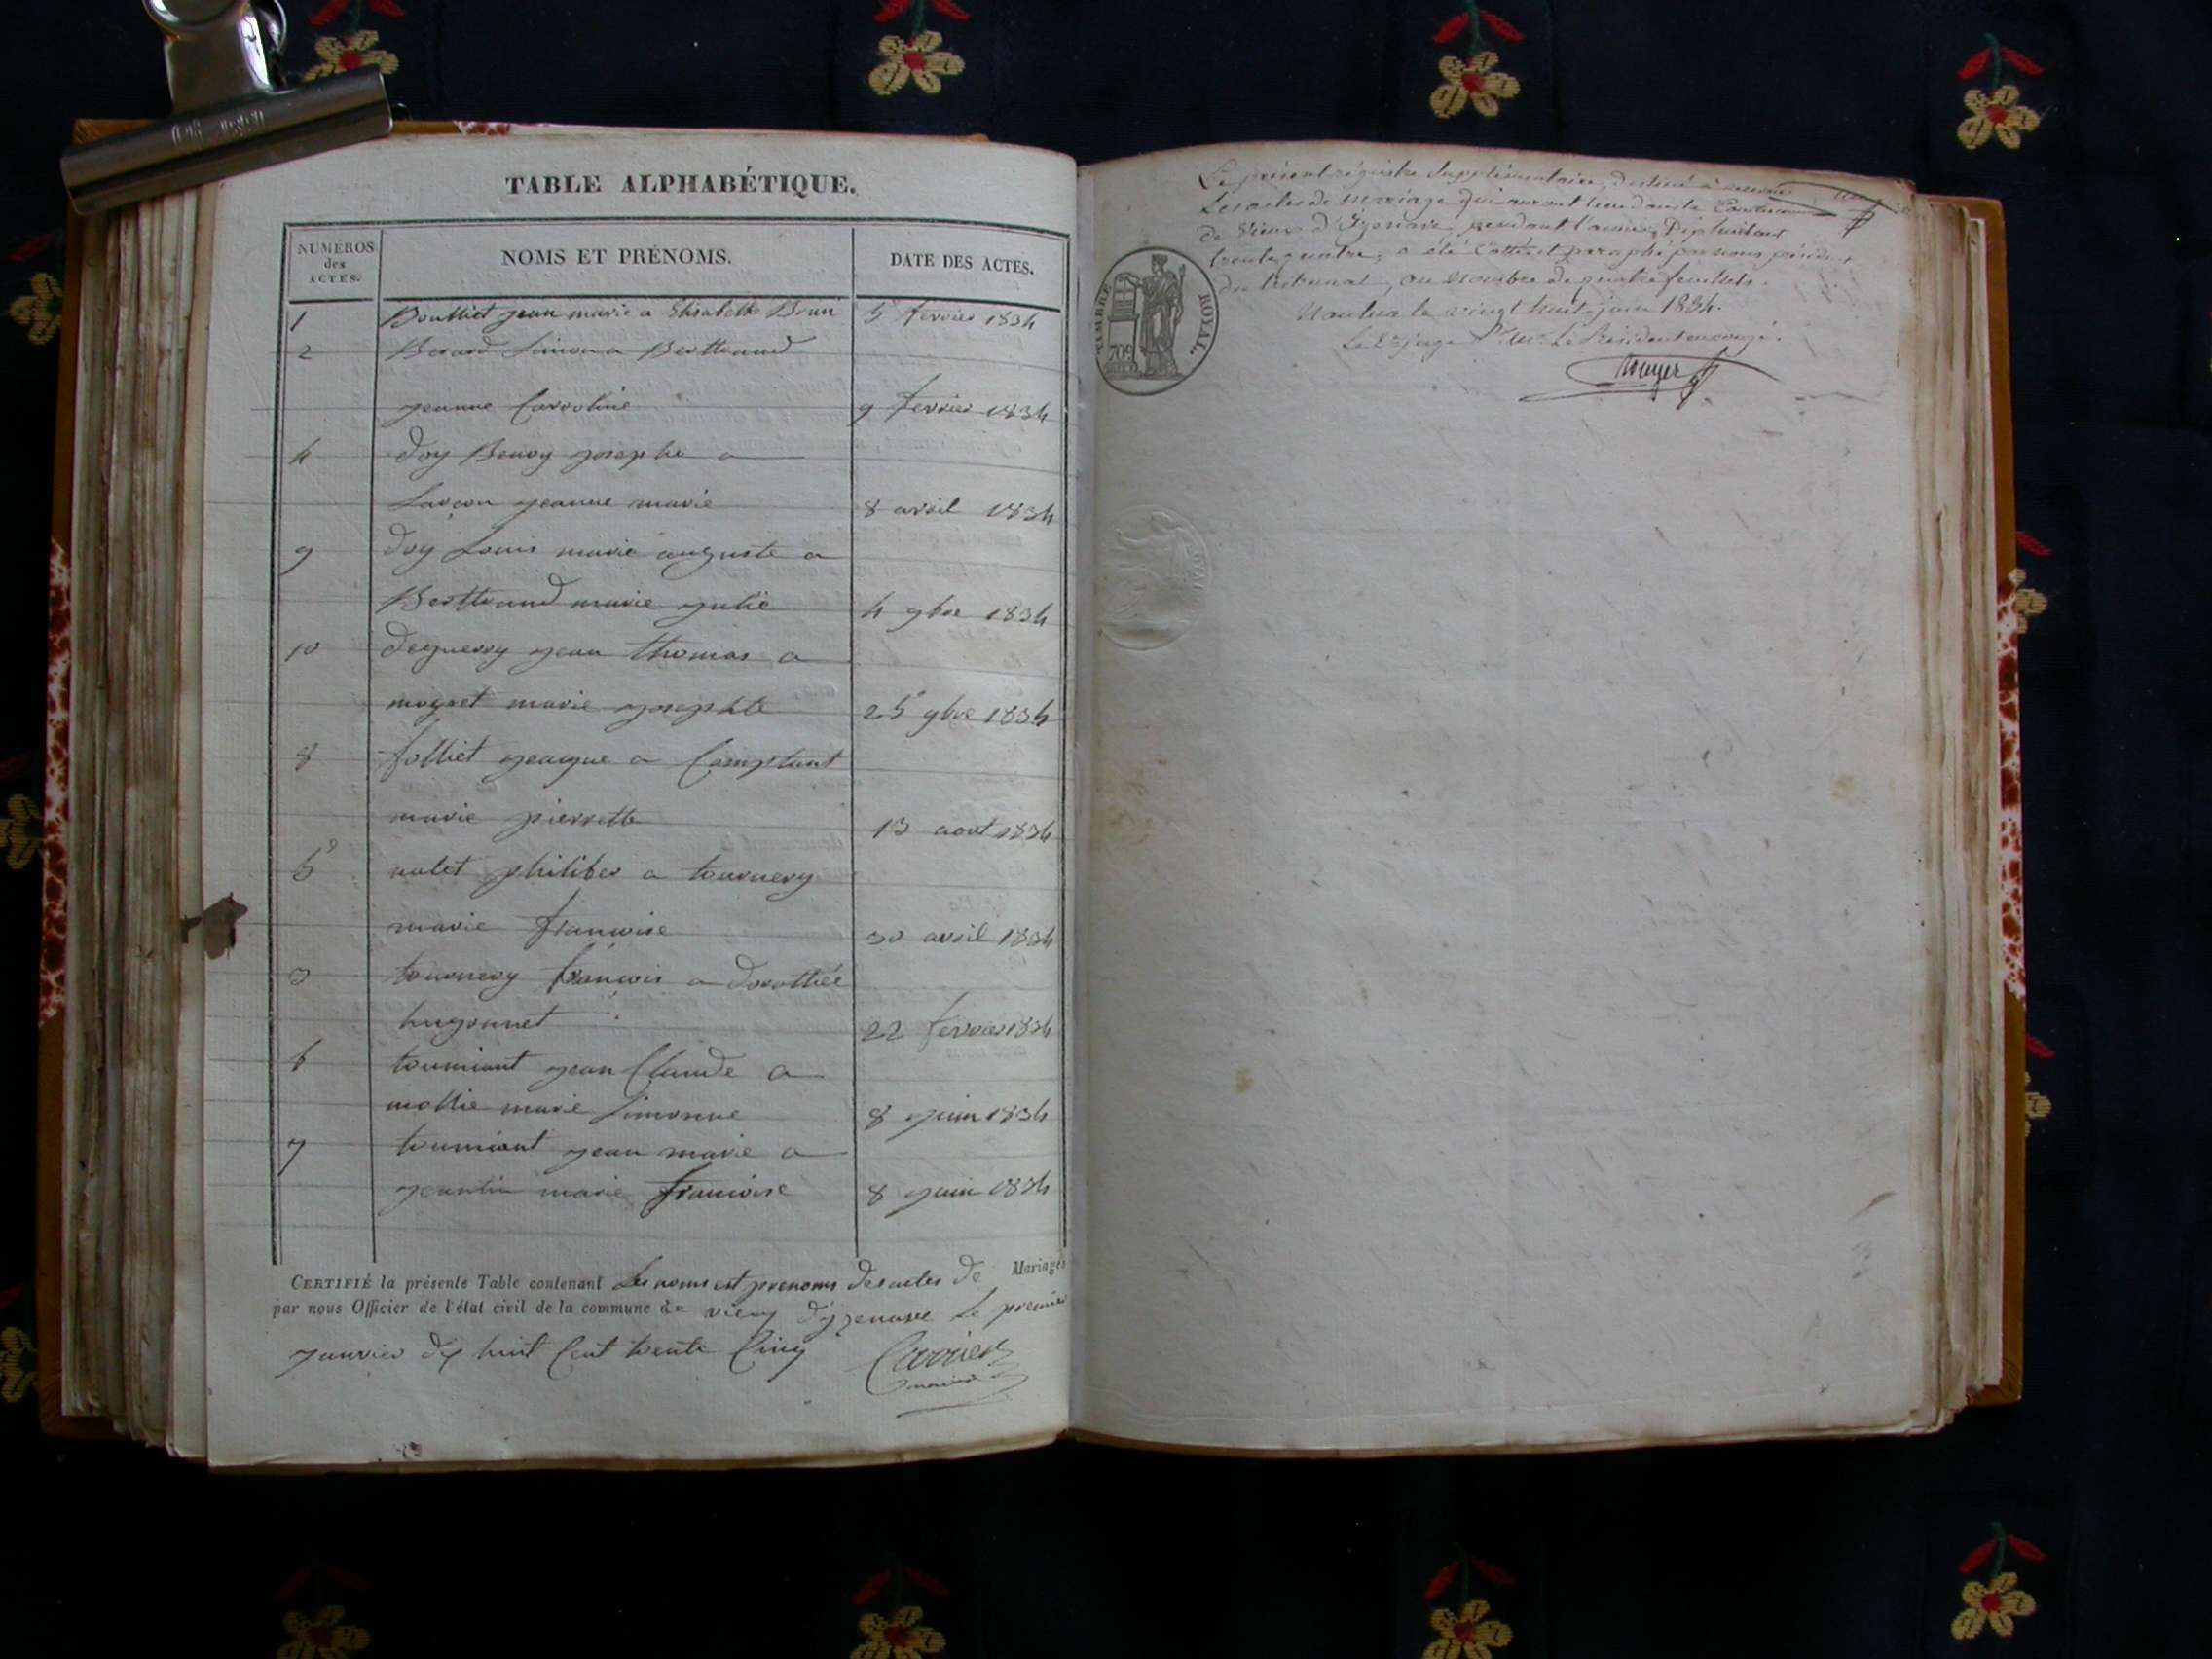 TABLE ALPHABÉTIQUE.
NUMÉROS des ACTES. NOMS ET PRÉNOMS. DATE DES ACTES.
1 Boulliet jean marie a Elisabette Brun 5 fevrier 1834
2 Berard Simon a Berthaud
jeanne Carroline 9 fevrier 1834
4 Doy Benoy josephe a
Larçon jeanne marie 8 avril 1834
9 Doy Louis marie auguste a
Bertheaud marie julie 4 9bre 1834
10 Deguerry jean thomas a
moyret marie josephte 25 9bre 1834
8 folliet jacque a Complant
marie pierrette 13 aout 1834
5 nalet philiber a tournery
marie francoise 30 avril 1834
3 tournery françois a dorothée
hugonnet 22 fevrier 1834
6 toumiant jean Claude a
mollie marie Simonne 8 juin 1834
7 toumiant jean marie a
jeantin marie francoise 8 juin 1834
CERTIFIÉ la présente Table contenant Les noms est prenoms des actes de Mariages
par nous Officier de l'état civil de la commune de vieuy d'yzenave Le premier
janvier dix huit Cent trente Cinq Carrier
maire
Le présent régistre Supplémentaire, destiné à recevoir
Les actes de Mariage qui auront lieu dans la Commune
de Vieux d'Izenave, pendant l'année Dix huit cent
trente quatre, a été Cotté et paraphé par nous président
du tribunal, au Nombre de quatre feuillets.
Nantua le vingt huit juin 1834.
Le juge pr. Mr. Le Président en congé.
TIMBRE ROYAL.
70c